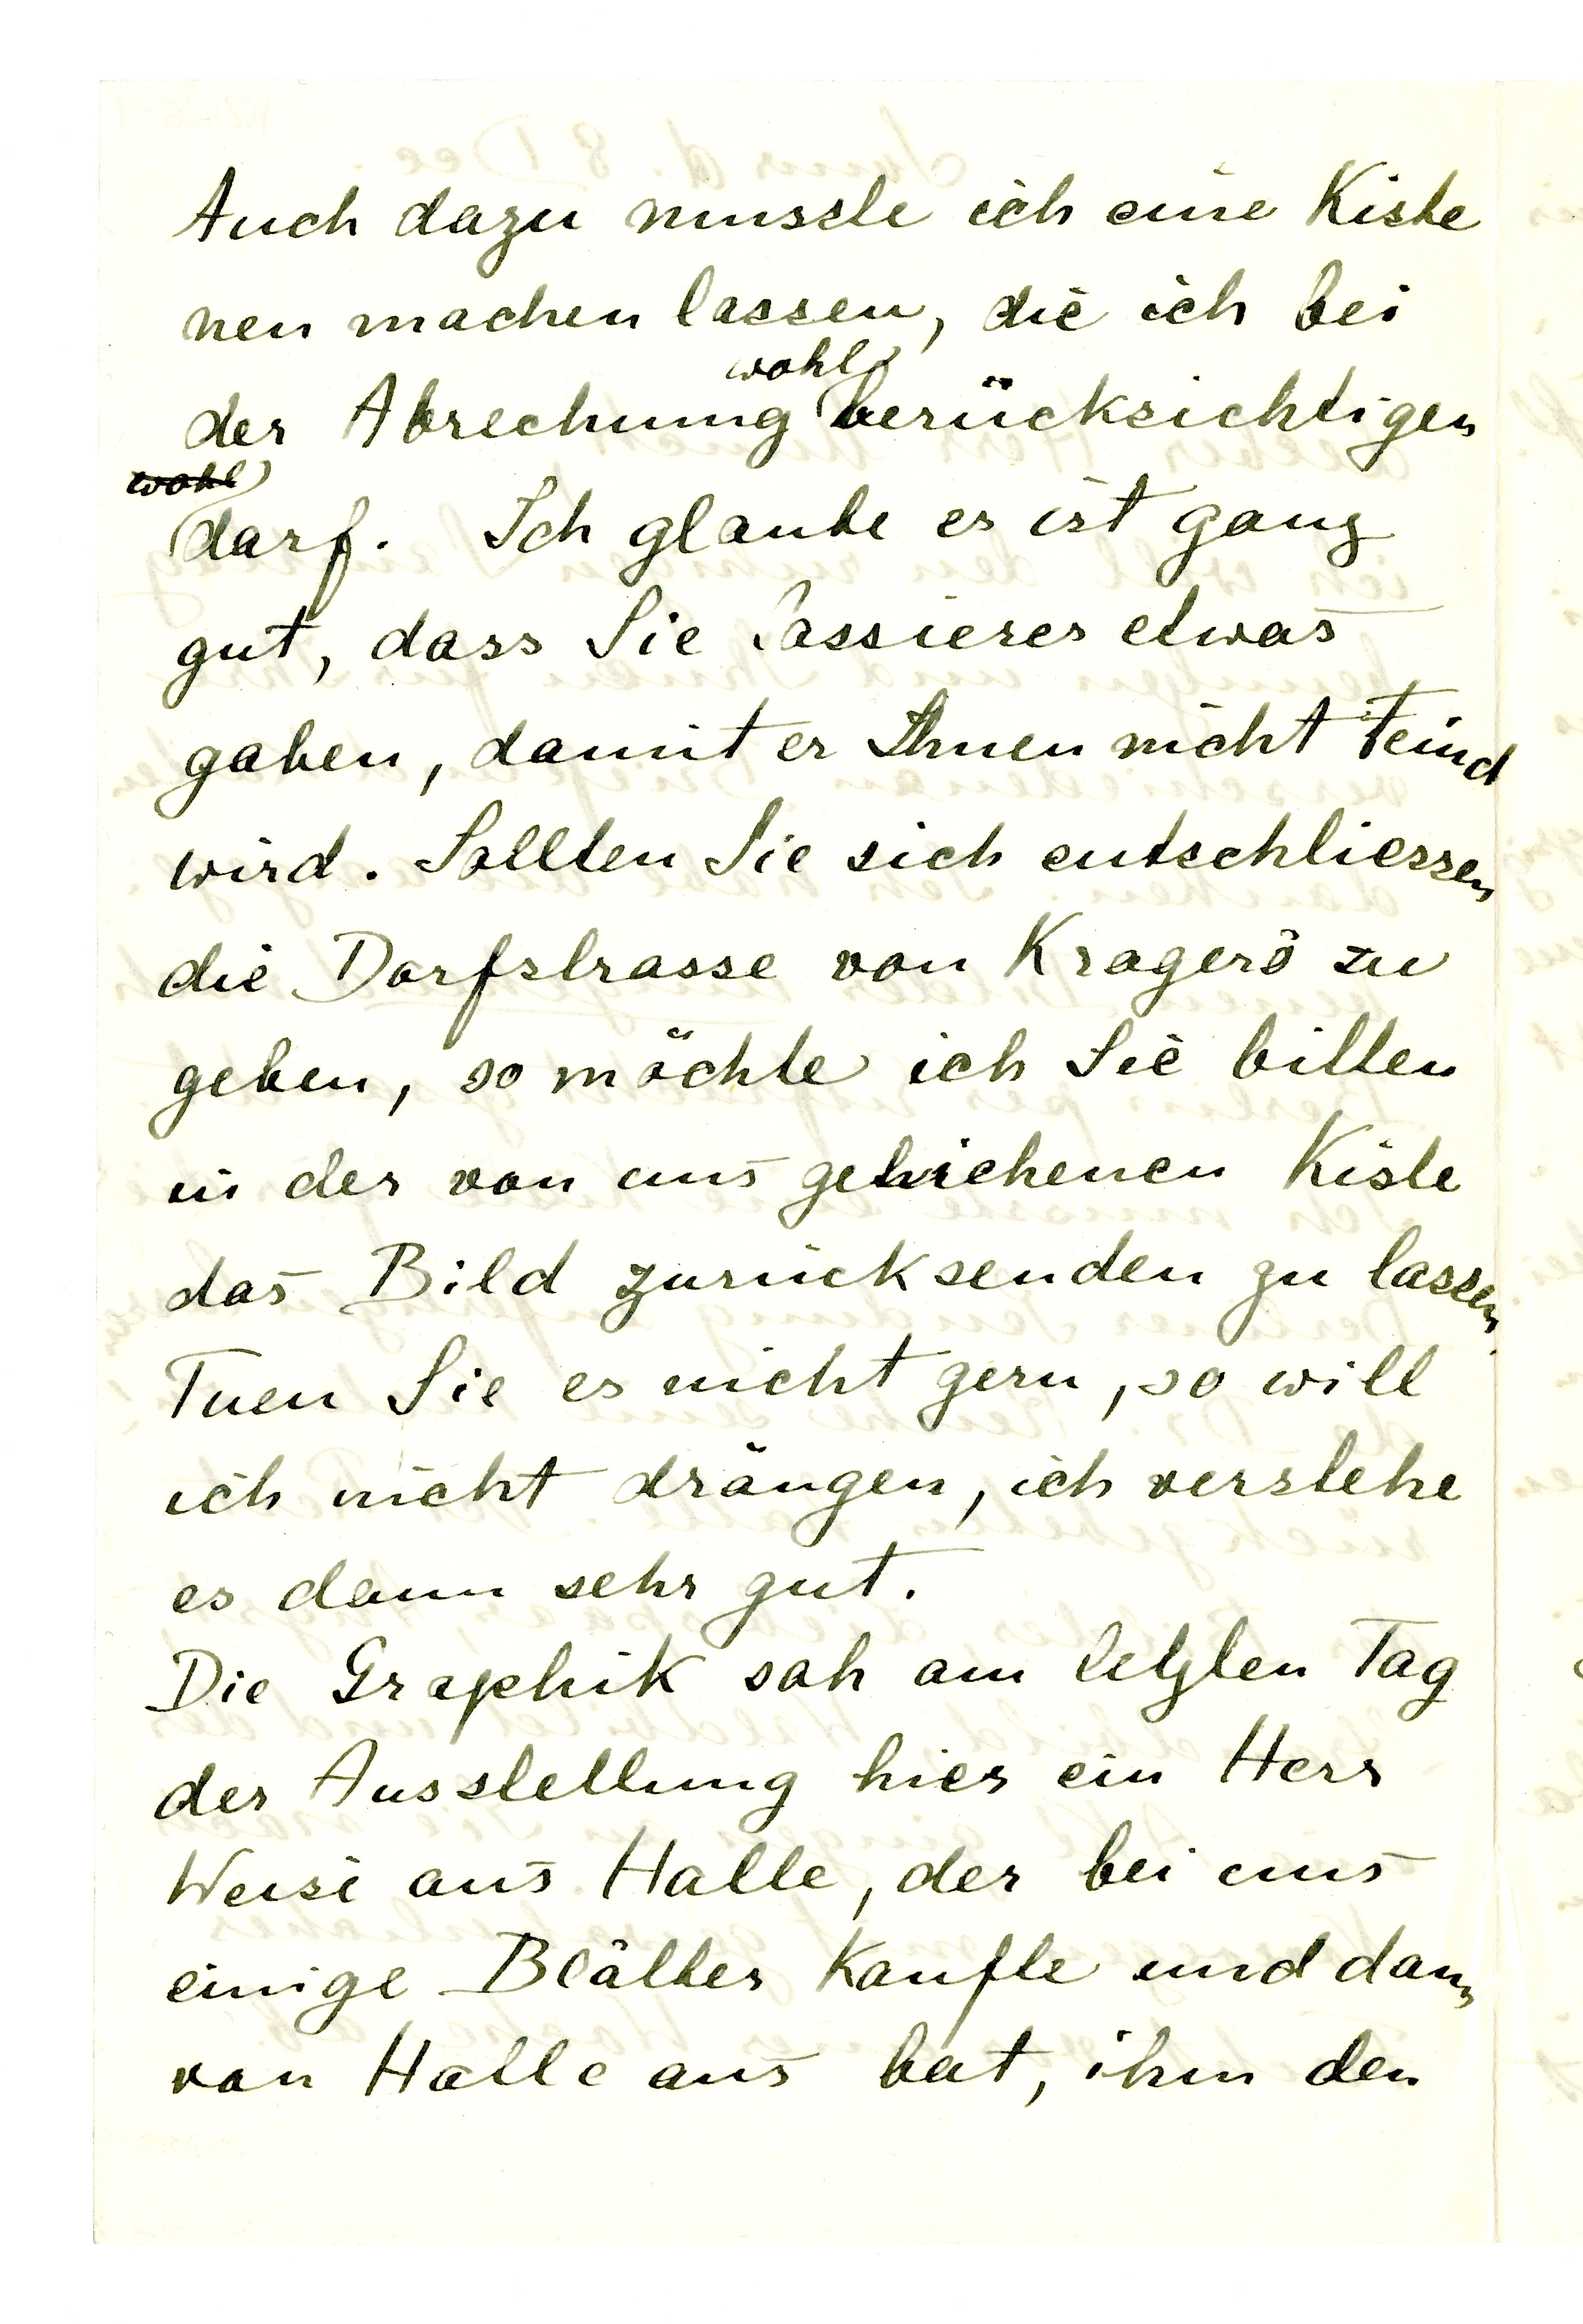 Auch dazu musste ich eine Kiste
neu machen lassen, die ich bei
der Abrechnung wohl berücksichtigen
wohl darf. Ich glaube es ist ganz
gut, dass Sie Cassierer etwas
gaben, damit er Ihnen nicht Feind
wird. Sollten Sie sich entschliessen
die Dorfstrasse von Kragerö zu
geben, so möchte ich Sie bitten
in der von uns geliehenen Kiste
das Bild zurücksenden zu lassen.
Tuen Sie es nicht gern, so will
ich nicht drängen, ich verstehe
es dann sehr gut.
Die Graphik sah am letzten Tag
der Ausstellung hier ein Herr
Weise aus Halle, der bei uns
einige Blätter kaufte und dann
von Halle aus bat, ihm den